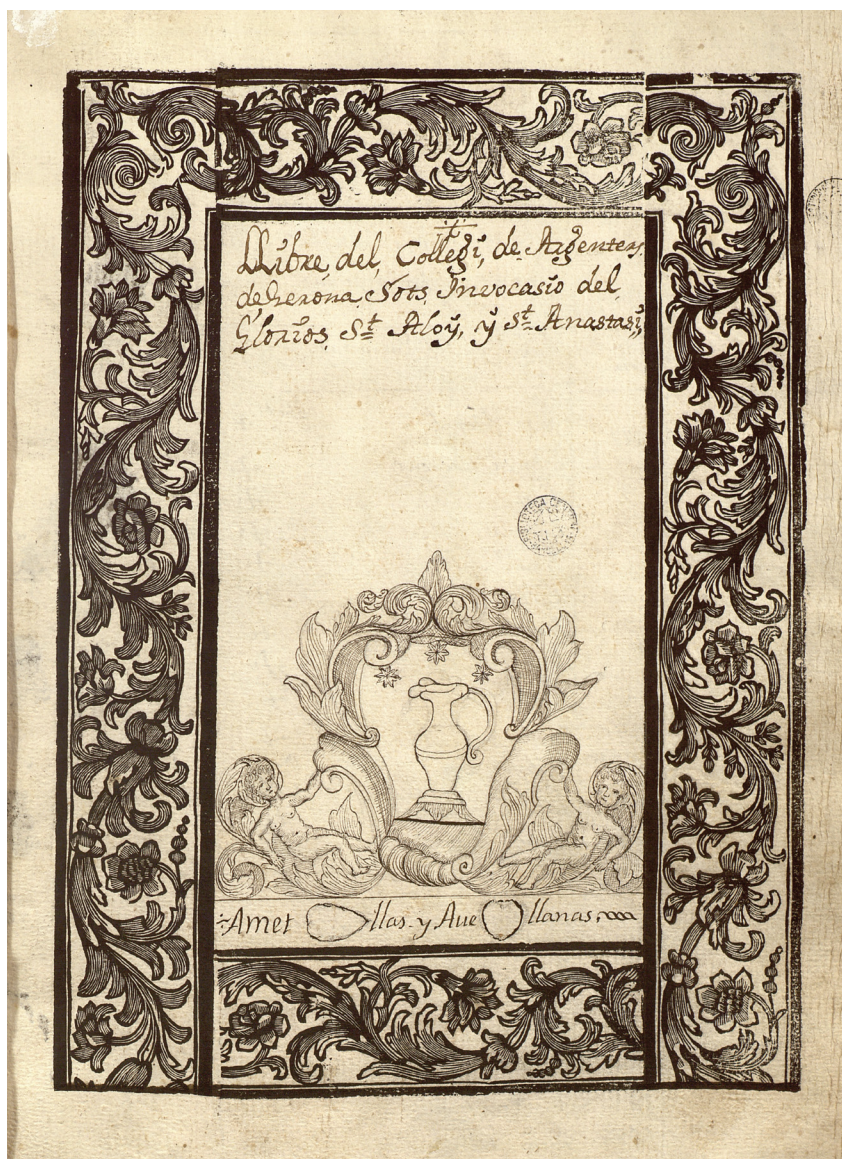 LLibre, del, Collegi, de Argenters,
de Gerona, Sots, Invocasio del,
Glorios, St Aloÿ, ÿ St Anastasi,
BIBLIOTECA CENTRAL
Amet llas. y Ave llanas,